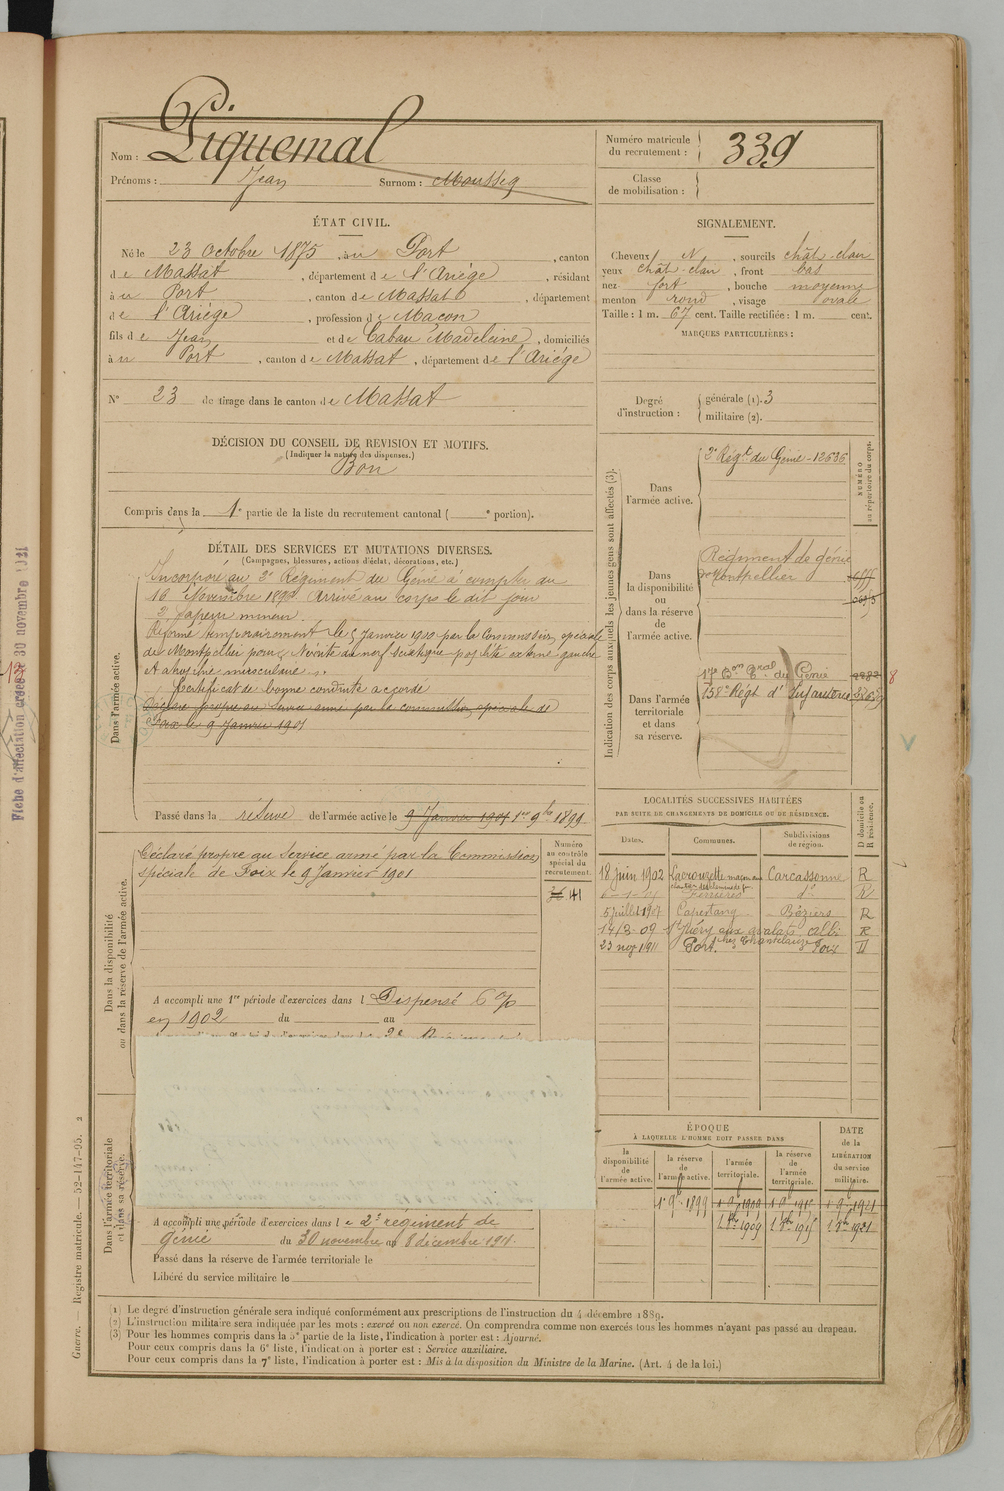 Piquemal
Nom :
Prénoms : Jean Surnom :
Numéro matricule
du recrutement : 339
Classe
de mobilisation :
ÉTAT CIVIL.
Né le 23 octobre 1875, au Port, canton
de Massat, département de l'Ariège, résidant
à u Port, canton de Massat, département
de l'Ariège, profession de Maçon
fils de Jean et de Cabau Madeleine, domiciliés
à u Port, canton de Massat, département de l'Ariège
N° 23 de tirage dans le canton de Massat
SIGNALEMENT.
Cheveux N, sourcils chât-clair
yeux chât-clair, front bas
nez fort, bouche moyenne
menton rond, visage ovale
Taille : 1 m. 67 cent. Taille rectifiée : 1 m. cent.
MARQUES PARTICULIÈRES :
Degré
d'instruction :
générale (1). 3
militaire (2).
DÉCISION DU CONSEIL DE REVISION ET MOTIFS.
(Indiquer la nature des dispenses.)
Bon
Compris dans la 1e partie de la liste du recrutement cantonal ( e portion).
DÉTAIL DES SERVICES ET MUTATIONS DIVERSES.
(Campagnes, blessures, actions d'éclat, décorations, etc.)
Dans l'armée active.
Incorporé au 2e Régiment du Génie à compter du
16 Novembre Arrivé au corps le dit jour
2e Sapeur mineur.
Réformé temporairement le 5 Janvier 1900 par la Commission spéciale
de Montpellier pour Névrite du nerf sciatique poplité externe gauche
et atrophie musculaire.
Certificat de bonne conduite accordé
Déclaré propre au Service armé par la commission spéciale de
Foix le 9 Janvier 1901
Passé dans la réserve de l'armée active le 9 Janvier 1901 1er 9bre 1899
Indication des corps auxquels les jeunes gens sont affectés (3).
NUMÉRO
au répertoire du corps.
Dans
l'armée active.
2e Régt du Génie - 12636
Dans
la disponibilité
ou
dans la réserve
de
l'armée active.
Régiment de génie
Montpellier
Dans l'armée
territoriale
et dans
sa réserve.
17e Bon Tral du Génie
158e Régt d'Infanterie
Dans la disponibilité
ou dans la réserve de l'armée active.
Déclaré propre au Service armé par la Commission
spéciale de Foix le 9 Janvier 1901
Numéro
au contrôle
spécial du
recrutement.
141
A accompli une 1re période d'exercices dans l Dispensé 6 %
en 1902 du au
LOCALITÉS SUCCESSIVES HABITÉES
PAR SUITE DE CHANGEMENTS DE DOMICILE OU DE RÉSIDENCE.
Dates. Communes. Subdivisions
de région. D domicile ou
R résidence.
18 juin 1902 Carcassonne R
do R
5 juillet 1907 Capestang Béziers R
14-8-09 St Juéry aux avalats Albi R
23 nov 1911 Port. Foix D
ÉPOQUE
À LAQUELLE L'HOMME DOIT PASSER DANS
DATE
de la
LIBÉRATION
du service
militaire.
la
disponibilité
de
l'armée active.
la réserve
de
l'armée active.
l'armée
territoriale.
la réserve
de
l'armée
territoriale.
1er 9bre 1899
Dans l'armée territoriale
et dans sa réserve.
A accompli une période d'exercices dans le 2e régiment de
génie du 30 novembre au 8 décembre 1911.
Passé dans la réserve de l'armée territoriale le
Libéré du service militaire le
(1) Le degré d'instruction générale sera indiqué conformément aux prescriptions de l'instruction du 4 décembre 1889.
(2) L'instruction militaire sera indiquée par les mots : exercé ou non exercé. On comprendra comme non exercés tous les hommes n'ayant pas passé au drapeau.
(3) Pour les hommes compris dans la 5e partie de la liste, l'indication à porter est : Ajourné.
Pour ceux compris dans la 6e liste, l'indication à porter est : Service auxiliaire.
Pour ceux compris dans la 7e liste, l'indication à porter est : Mis à la disposition du Ministre de la Marine. (Art. 4 de la loi.)
Guerre. Registre matricule. — 52-147-95. 2
Fiche d'affectation créée le 30 novembre 1921